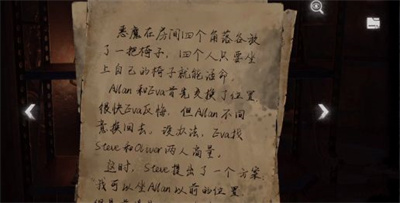 恶魔在房间四个角落各放
了一把椅子，四个人只要坐
上自己的椅子就能活命
Allan和Eva首先交换了位置
很快Eva反悔，但Allan不同
意换回去。没办法，Eva找
Steve和Oliver两人商量。
这时，Steve提出了一个方案
我可以坐Allan以前的位置